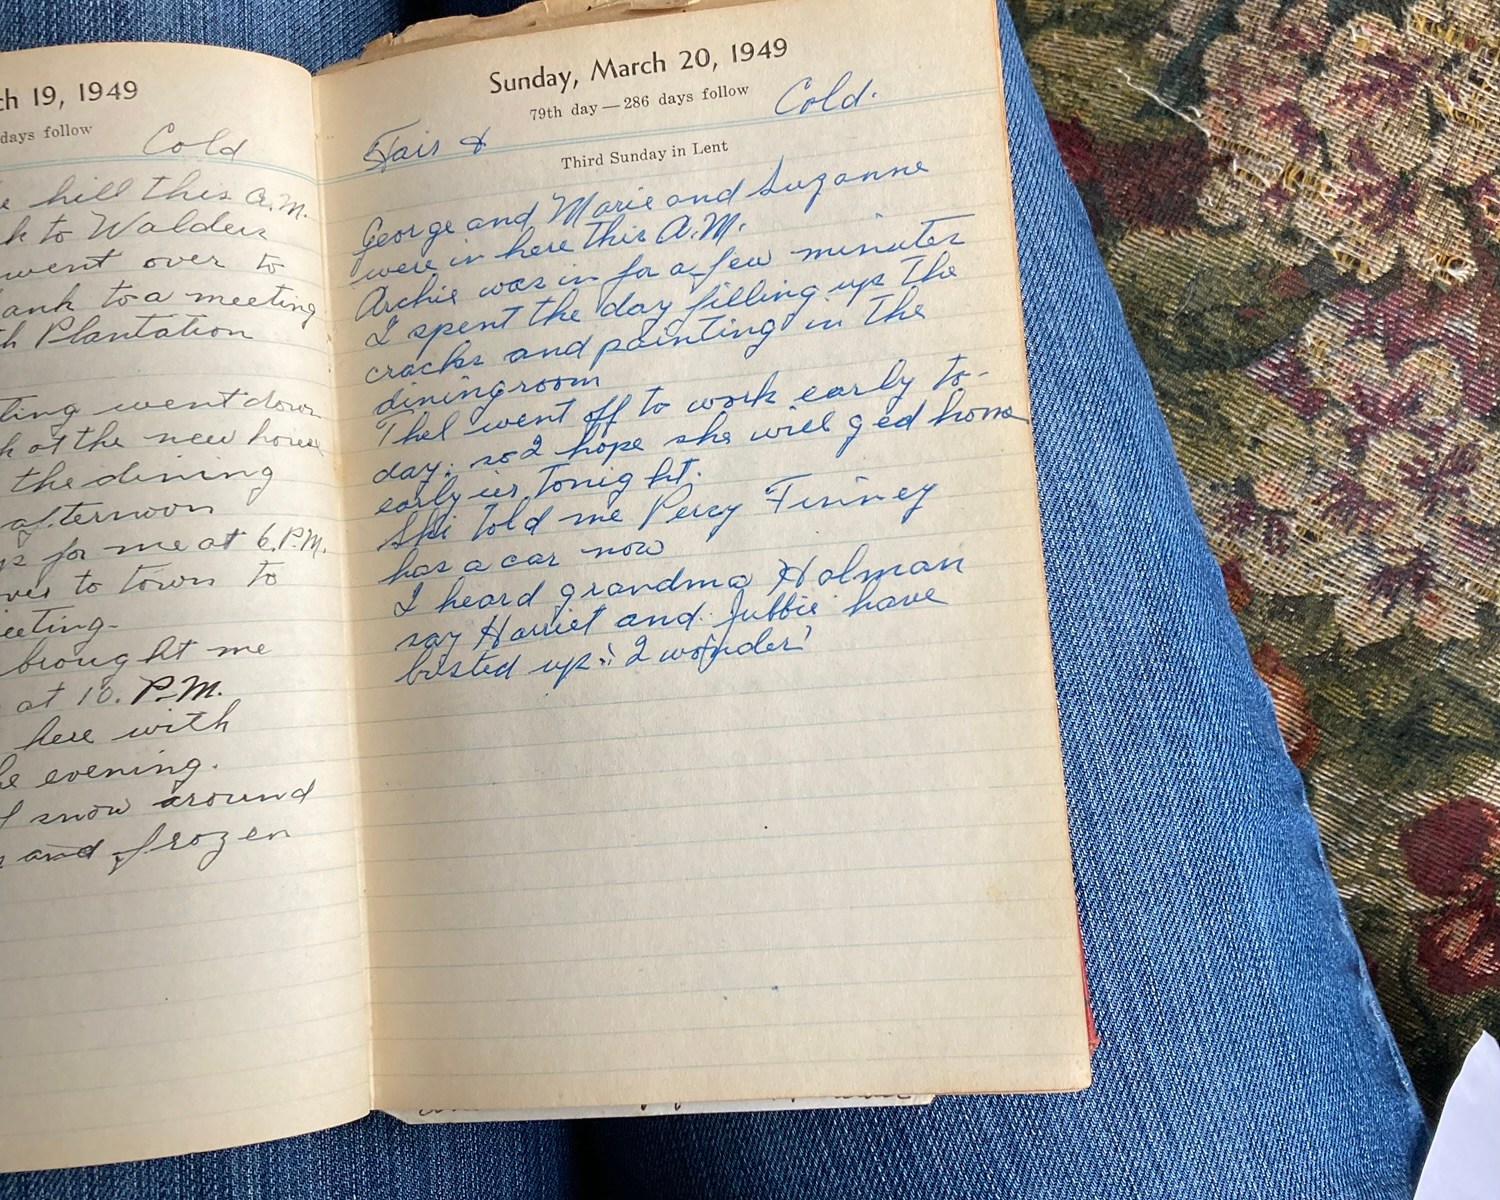 ch 19, 1949
days follow
Cold
hill this A.M.
k to Walders
went over to
ank to a meeting
th Plantation
ting went down
k at the new house
the dining
afternoon
for me at 6 P.M.
ves to town to
eeting.
brought me
at 10. P.M.
here with
he evening.
snow around
and frozen
Sunday, March 20, 1949
79th day — 286 days follow
Fair & Cold.
Third Sunday in Lent
George and Marie and Suzanne
were in here this A.M.
Archie was in for a few minutes
I spent the day filling up the
cracks and painting in the
diningroom
Thel went off to work early to-
day; so I hope she will ged home
early ier tonight.
She told me Percy Finney
has a car now
I heard grandma Holman
say Harriet and Jubbie have
busted up: I wonder!